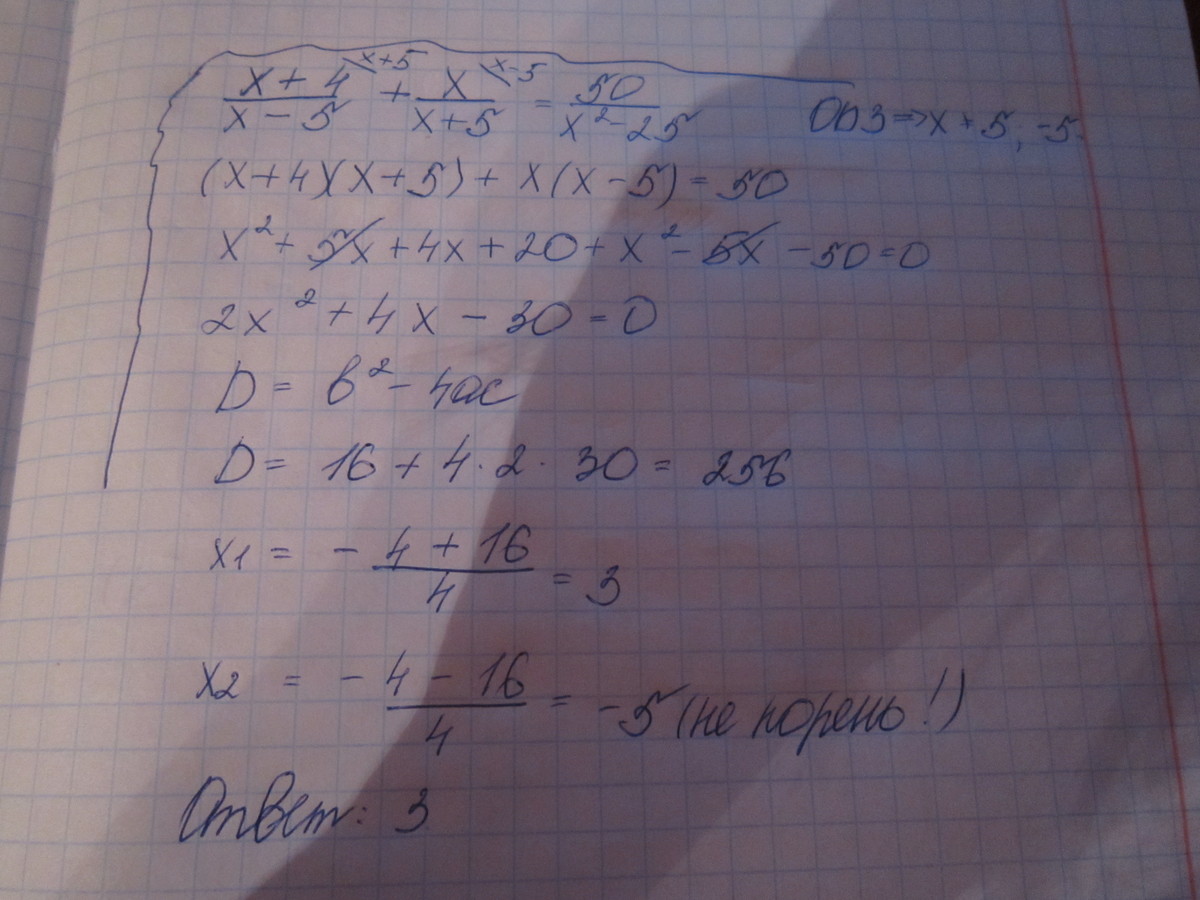 (x + 4)/(x - 5) \x+5 + x/(x+5) \x-5 = 50/(x² - 25) ОДЗ => x ≠ 5, -5.
(x+4)(x+5) + x(x-5) = 50
x² + 5x + 4x + 20 + x² - 5x - 50 = 0
2x² + 4x - 30 = 0
D = b² - 4ac
D = 16 + 4 · 2 · 30 = 256
x1 = - 4 + 16 / 4 = 3
x2 = - 4 - 16 / 4 = -5 (не корень!)
Ответ: 3